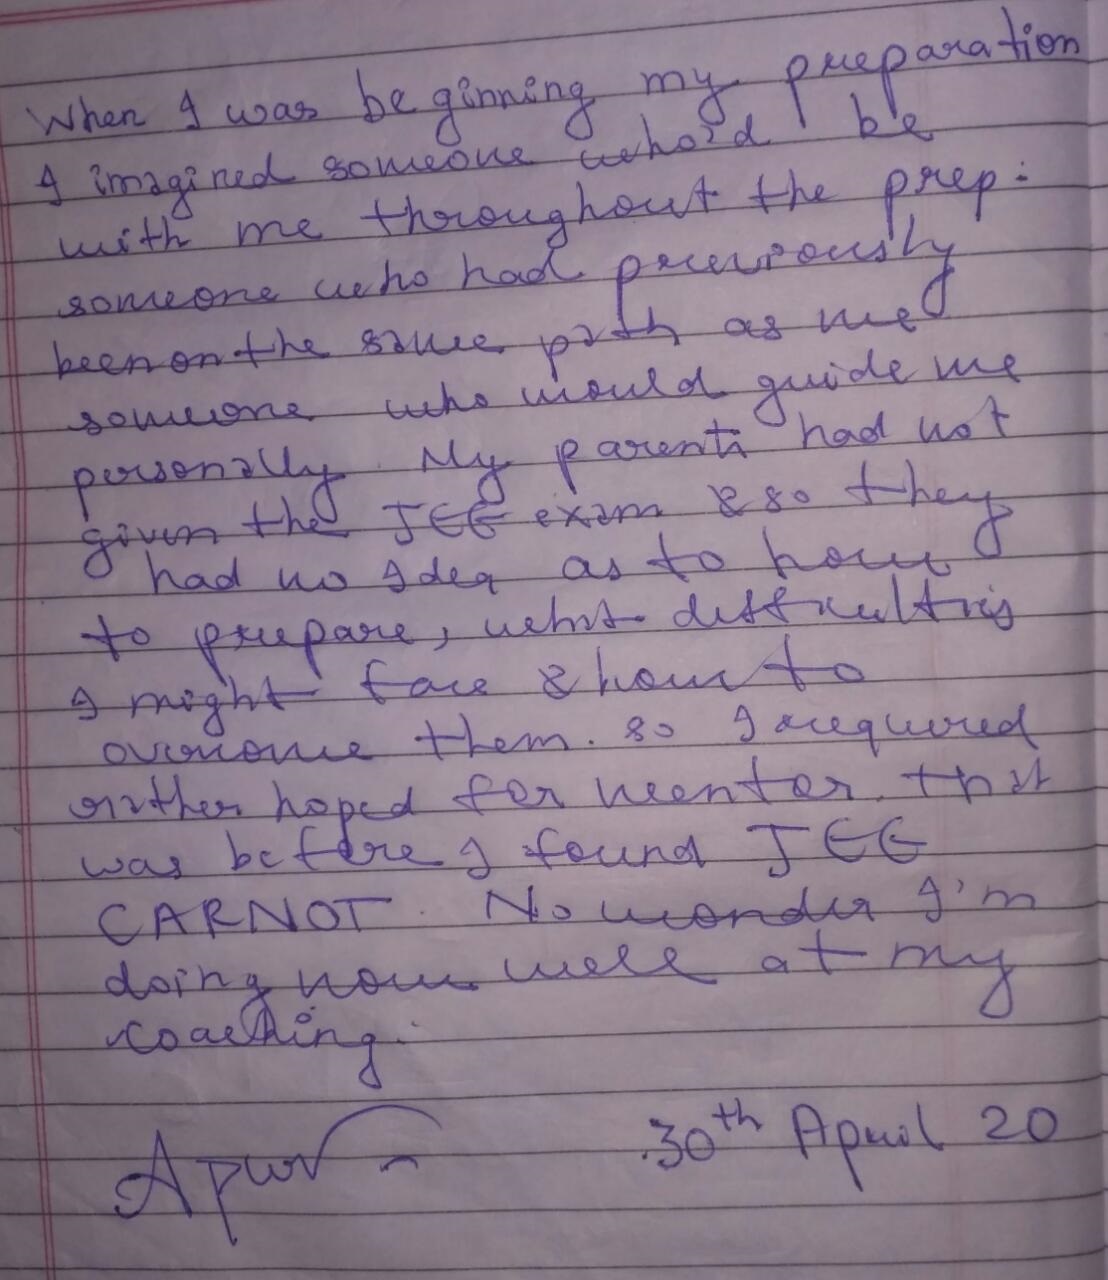 When I was beginning my preparation
I imagined someone who'd be
with me throughout the prep.
someone who had previously
been on the same path as me
someone who would guide me
personally. My parents had not
given the JEE exam & so they
had no Idea as to how
to prepare, what difficulties
I might face & how to
overcome them. so I required
rather hoped for mentor. that
was before I found JEE
CARNOT. No wonder I'm
doing now well at my
coaching.
30th April 20